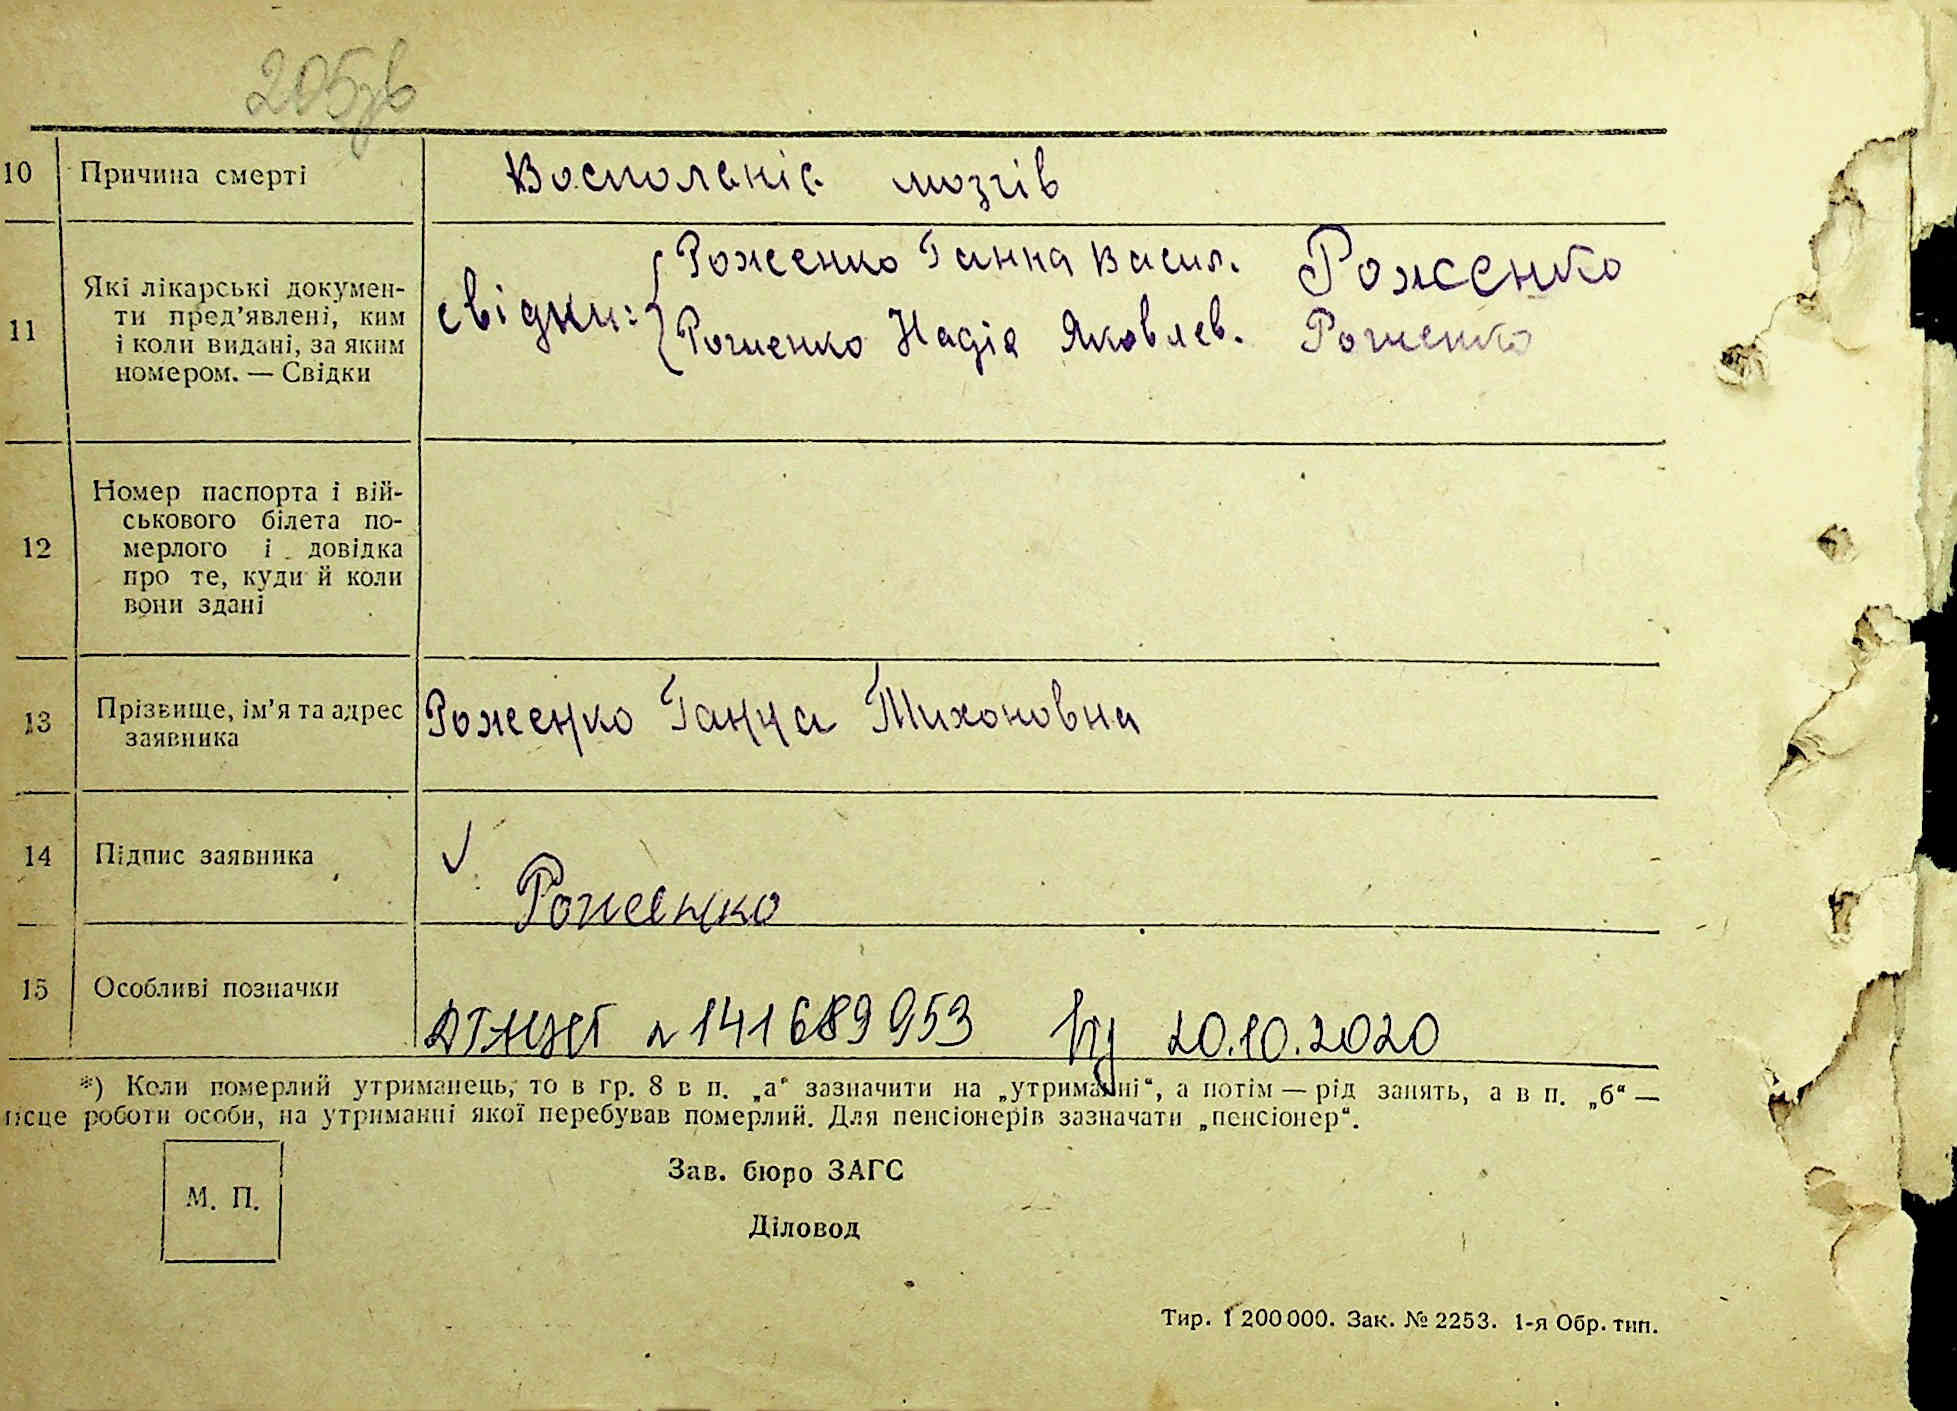 205зв
10 Причина смерті Восполеніє мозгів
11 Які лікарські докумен-
ти пред’явлені, ким
і коли видані, за яким
номером. — Свідки
свідки: Роженко Ганна Васил. Роженко
Роженко Надія Яковлев. Роженко
12 Номер паспорта і вій-
ськового білета по-
мерлого і довідка
про те, куди й коли
вони здані
13 Прізвище, ім’я та адрес
заявника
Роженко Ганна Тихоновна
14 Підпис заявника
Роженко
15 Особливі позначки
141689953 від 20.10.2020
*) Коли померлий утриманець, то в гр. 8 в п. „а“ зазначити на „утриманні“, а потім — рід занять, а в п. „б“ —
місце роботи особи, на утриманні якої перебував померлий. Для пенсіонерів зазначати „пенсіонер“.
М. П.
Зав. бюро ЗАГС
Діловод
Тир. 1 200 000. Зак. № 2253. 1-я Обр. тип.